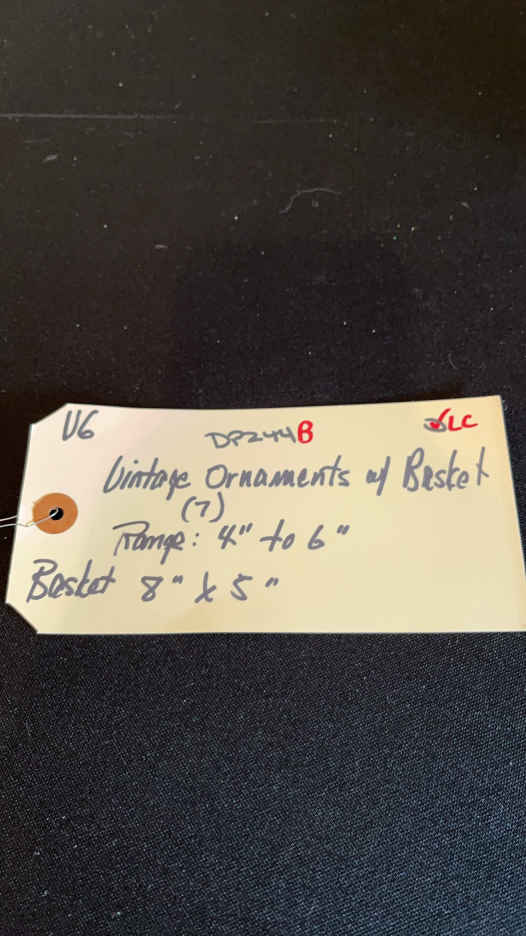 V6
DP244B
LC
Vintage Ornaments w/ Basket
(7)
Range: 4" to 6"
Basket 8" x 5"